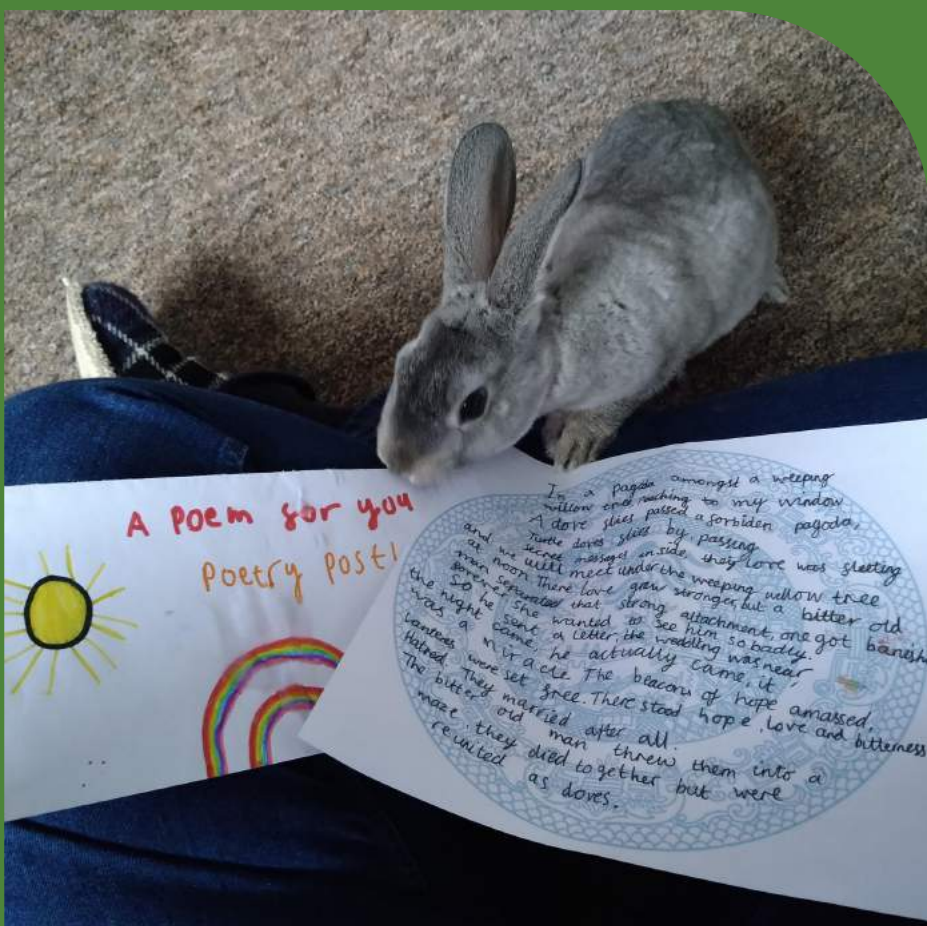 A Poem for you
Poetry Post!
In a pagoda amongst a weeping
willow end reaching to my window
A dove flies passed a forbiden pagoda,
Turtle doves flies by, passing
secret messages inside, they love was fleeting
and we will meet under the weeping willow tree
at noon. There love grew stronger, but a bitter old
man separated that strong attachment, one got banish
forever, she wanted to see him so badly.
So he sent a letter, the wedding was near,
the night came, he actually came, it
was a miracle. The beacons of hope amassed,
Lanterns were set free. There stood hope, love and bitterness
Hatred. They married after all.
The bitter old man threw them into a
maze, they died together but were
reunited as doves.